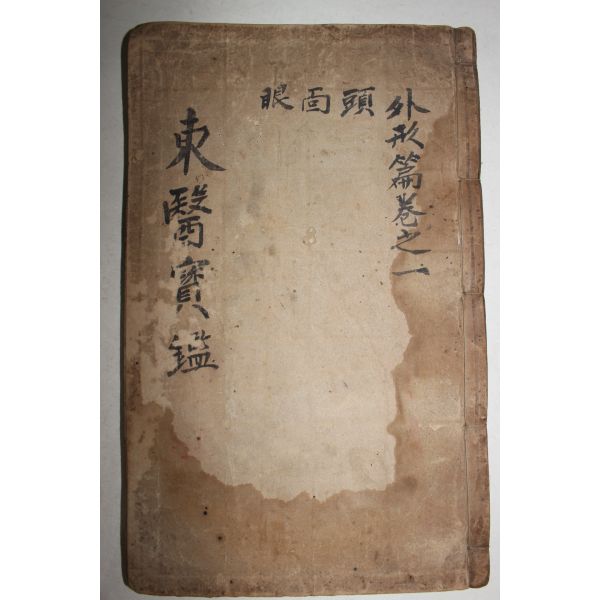 外形篇卷之一
頭面眼
東醫寶鑑